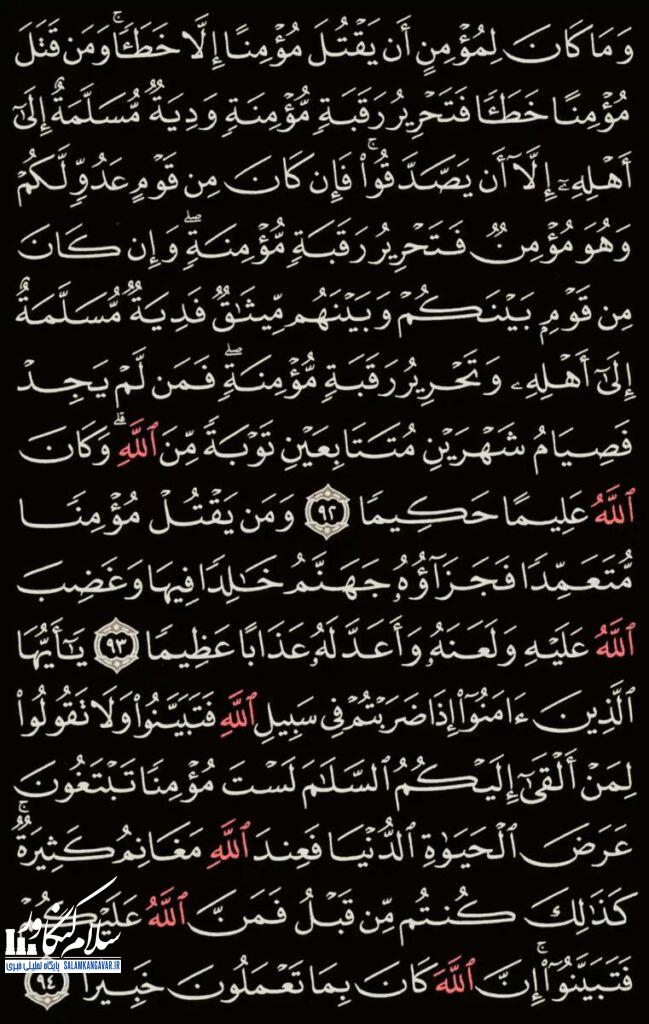 وَمَا كَانَ لِمُؤْمِنٍ أَن يَقْتُلَ مُؤْمِنًا إِلَّا خَطَـًٔا ۚ وَمَن قَتَلَ
مُؤْمِنًا خَطَـًٔا فَتَحْرِيرُ رَقَبَةٍ مُّؤْمِنَةٍ وَدِيَةٌ مُّسَلَّمَةٌ إِلَىٰٓ
أَهْلِهِۦٓ إِلَّآ أَن يَصَّدَّقُوا۟ ۚ فَإِن كَانَ مِن قَوْمٍ عَدُوٍّ لَّكُمْ
وَهُوَ مُؤْمِنٌ فَتَحْرِيرُ رَقَبَةٍ مُّؤْمِنَةٍ ۖ وَإِن كَانَ
مِن قَوْمٍۭ بَيْنَكُمْ وَبَيْنَهُم مِّيثَٰقٌ فَدِيَةٌ مُّسَلَّمَةٌ
إِلَىٰٓ أَهْلِهِۦ وَتَحْرِيرُ رَقَبَةٍ مُّؤْمِنَةٍ ۖ فَمَن لَّمْ يَجِدْ
فَصِيَامُ شَهْرَيْنِ مُتَتَابِعَيْنِ تَوْبَةً مِّنَ ٱللَّهِ ۗ وَكَانَ
ٱللَّهُ عَلِيمًا حَكِيمًا ٩٢ وَمَن يَقْتُلْ مُؤْمِنًا
مُّتَعَمِّدًا فَجَزَآؤُهُۥ جَهَنَّمُ خَٰلِدًا فِيهَا وَغَضِبَ
ٱللَّهُ عَلَيْهِ وَلَعَنَهُۥ وَأَعَدَّ لَهُۥ عَذَابًا عَظِيمًا ٩٣ يَٰٓأَيُّهَا
ٱلَّذِينَ ءَامَنُوٓا۟ إِذَا ضَرَبْتُمْ فِى سَبِيلِ ٱللَّهِ فَتَبَيَّنُوا۟ وَلَا تَقُولُوا۟
لِمَنْ أَلْقَىٰٓ إِلَيْكُمُ ٱلسَّلَٰمَ لَسْتَ مُؤْمِنًا تَبْتَغُونَ
عَرَضَ ٱلْحَيَوٰةِ ٱلدُّنْيَا فَعِندَ ٱللَّهِ مَغَانِمُ كَثِيرَةٌ ۚ
كَذَٰلِكَ كُنتُم مِّن قَبْلُ فَمَنَّ ٱللَّهُ عَلَيْكُمْ
فَتَبَيَّنُوٓا۟ ۚ إِنَّ ٱللَّهَ كَانَ بِمَا تَعْمَلُونَ خَبِيرًا ٩٤
سلام کنگاور
پایگاه تحلیلی خبری SALAMKANGAVAR.IR